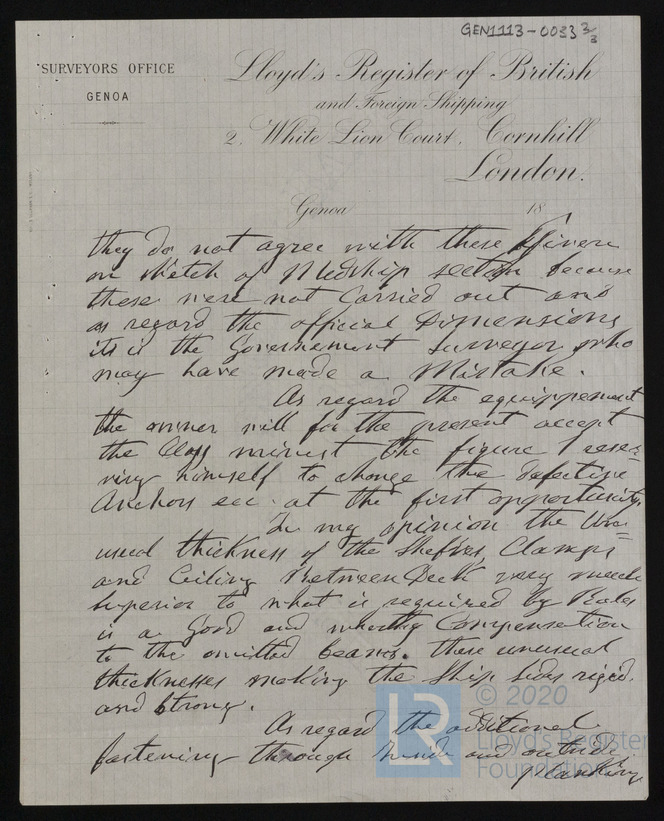 GEN1113-0033 2/3
SURVEYORS OFFICE
GENOA
Lloyd's Register of British
and Foreign Shipping
2, White Lion Court, Cornhill
London.
Genoa 18
they do not agree with these given
on sketch of Midship section because
these were not Carried out and
as regard the official Dimensions
its is the Governement Surveyor who
may have made a Mistake.
As regard the equippement
the owner will for the present accept
the Class minust the figure 1 reser=
ving himself to change the defective
Anchors ecc. at the first opportunity
In my opinion the Un=
usual thickness of the Shelves, Clamps
and Ceiling Between Deck very much
superior to what is required by Rules
is a good and Compensation
to the omitted beams. These unusual
thicknesses making the Ship sides riged
and strong.
As regard the additional
fastening through inside and outside
planking
LR
© 2020
Lloyd's Register
Foundation